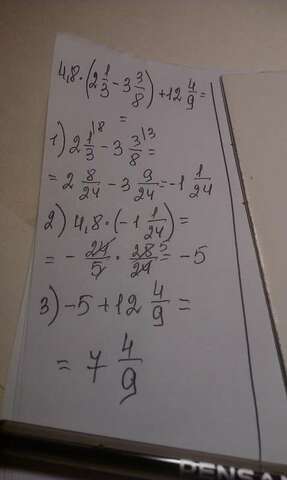 4,8·(2 1/3 − 3 3/8) + 12 4/9 =
=
1) 2 1/3 \8 − 3 3/8 \3 =
= 2 8/24 − 3 9/24 = −1 1/24
2) 4,8·(−1 1/24) =
= − 24/5 · 25 5/24 = −5
3) −5 + 12 4/9 =
= 7 4/9
PENSAN